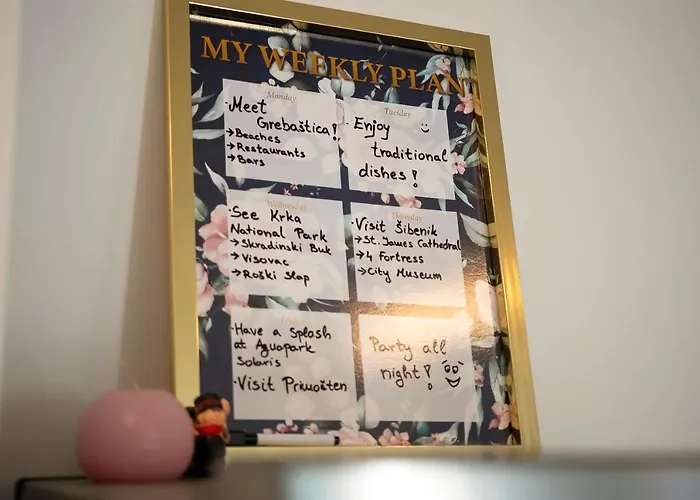 MY WEEKLY PLAN
Monday
·Meet
Grebaštica!
→Beaches
→Restaurants
→Bars
Tuesday
·Enjoy
traditional
dishes!
Wednesday
·See Krka
National Park
→Skradinski Buk
→Visovac
→Roški slap
Thursday
·Visit Šibenik
→St. James Cathedral
→4 Fortress
→City Museum
·Have a Splash
at Aquapark
Solaris
·Visit Primošten
Party all
night!